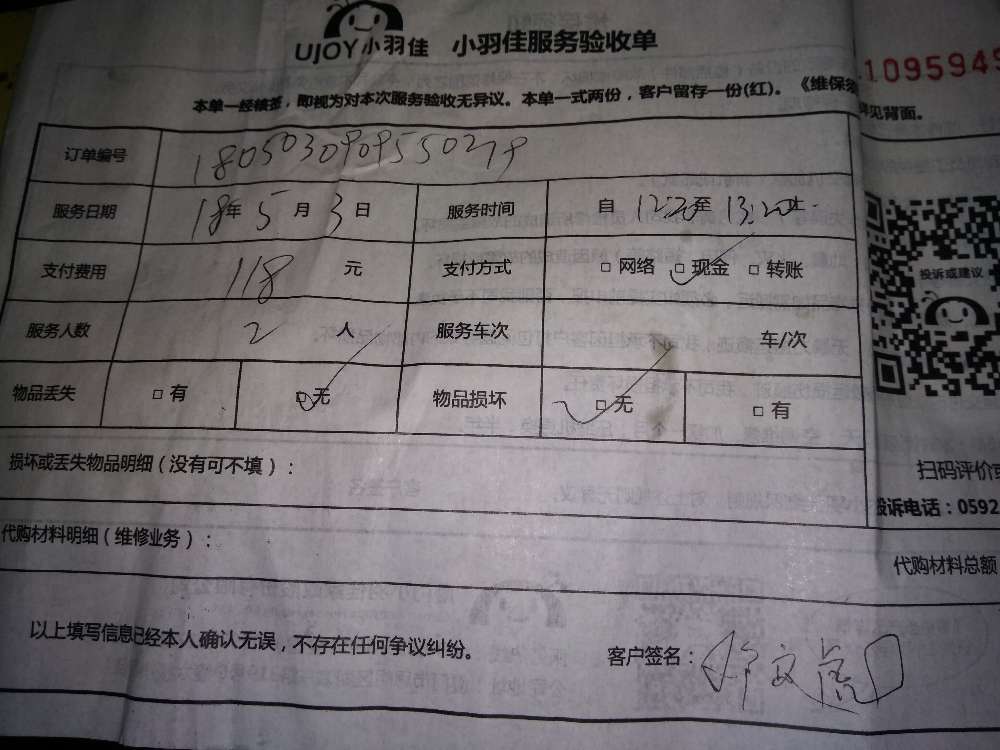 UJOY小羽佳 小羽佳服务验收单
1095949
本单一经核签，即视为对本次服务验收无异议。本单一式两份，客户留存一份(红)。《维保须
详见背面。
订单编号
服务日期 18年 5月 3日 服务时间 自 12:20至 13:20止
支付费用 118 元 支付方式 □ 网络 □ 现金 □ 转账
服务人数 2 人 服务车次 车/次
物品丢失 □ 有 □ 无 物品损坏 □ 无 □ 有
投诉或建议
损坏或丢失物品明细（没有可不填）：
扫码评价或
投诉电话：0592
代购材料明细（维修业务）：
代购材料总额
以上填写信息已经本人确认无误，不存在任何争议纠纷。 客户签名：